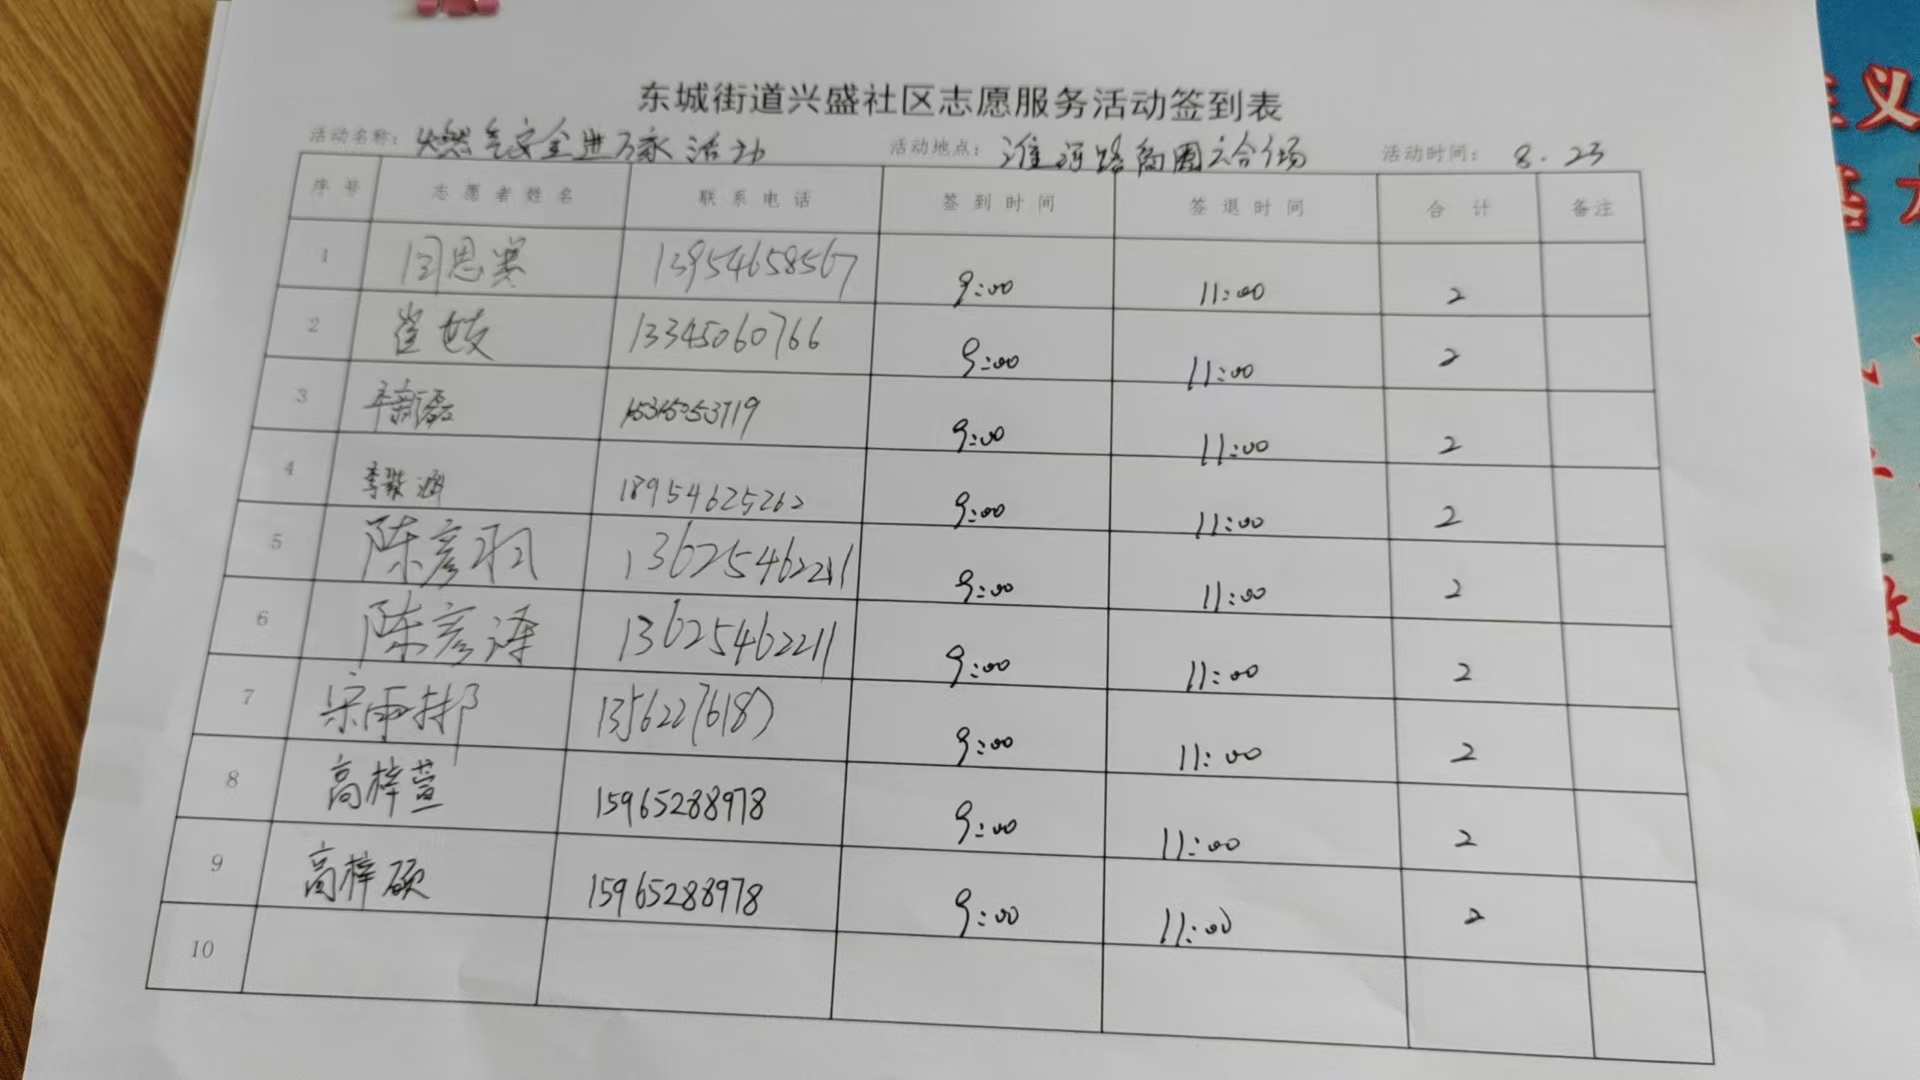 东城街道兴盛社区志愿服务活动签到表
活动名称: 燃气安全进万家活动 活动地点: 淮河路商圈六合广场 活动时间: 8.23
序号 志愿者姓名 联系电话 签到时间 签退时间 合计 备注
1 闫思寒 13954658567 9:00 11:00 2
2 13345060766 9:00 11:00 2
3 辛新磊 15315053719 9:00 11:00 2
4 涵 18954625262 9:00 11:00 2
5 陈彦羽 13625462211 9:00 11:00 2
6 陈彦涛 13625462211 9:00 11:00 2
7 宋雨 13562276187 9:00 11:00 2
8 高梓萱 15965288978 9:00 11:00 2
9 高梓硕 15965288978 9:00 11:00 2
10
义